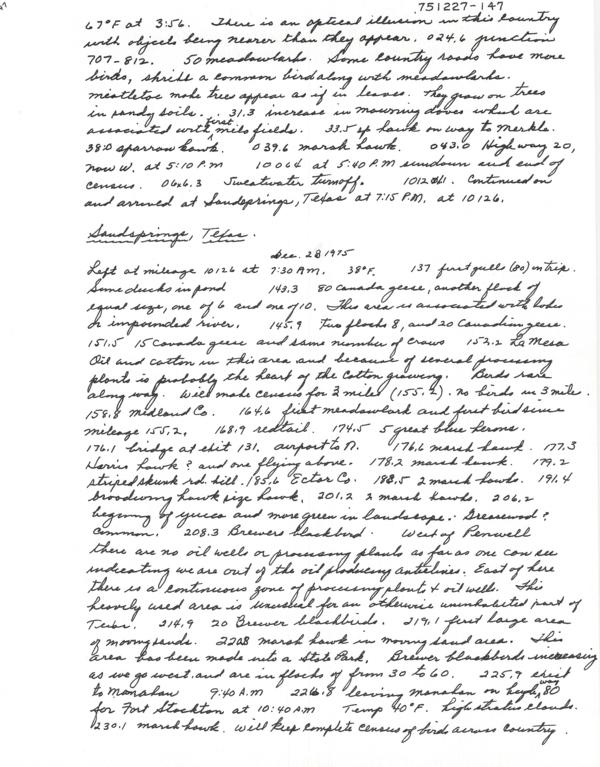 751227-147
67°F at 3:56. There is an optical illusion in this country
with objects being nearer than they appear. 024.6 junction
707-812. 50 meadowlarks. Some country roads have more
birds, shrike a common bird along with meadowlarks.
mistletoe make trees appear as if in leaves. They grow on trees
in sandy soils. 31.3 increase in mourning doves which are
associated with first milo fields. 33.5 sp hawk on way to Merkle.
38.0 sparrow hawk. 039.6 marsh hawk. 043.0 Highway 20,
now W. at 5:10 P.m 10064 at 5:40 P.M sundown and end of
census. 06x6.3 Sweatwater turnoff. Continued on
and arrived at Sandsprings, Texas at 7:15 P.M. at 10126.
Sandsprings, Texas.
Dec. 28 1975
Left at mileage 10126 at 7:30 Am. 38°F. 137 first gulls (80) in trip.
Some ducks in pond 143.3 80 Canada geese, another flock of
equal size, one of 6 and one of 10. This area is associated with lakes
or impounded river. 145.9 Two flocks 8, and 20 Canadian geese.
151.5 15 Canada geese and same number of crows 152.2 La Mesa
Oil and cotton in this area and because of several processing
plants is probably the heart of the cotton growing. Birds rare
along way. Will make census for 3 miles (155.2). no birds in 3 mile.
158.8 Midland Co. 164.6 first meadowlark and first bird since
mileage 155.2. 168.9 redtail. 174.5 5 great blue herons.
176.1 bridge at exit 131, airport to N. 176.6 marsh hawk. 177.3
Harris hawk? and one flying above. 178.2 marsh hawk. 179.2
striped skunk rd. kill. 185.6 Ector Co. 188.5 2 marsh hawks. 191.4
broadwing hawk size hawk. 201.2 2 marsh hawks. 206.2
beginning of yucca and more green in landscape. Greasewood?
Common. 208.3 Brewers blackbird. West of Penwell
there are no oil wells or processing plants as far as one can see
indicating we are out of the oil producing anticlines. East of here
there is a continuous zone of processing plants & oil wells. This
heavily used area is unusual for an otherwise uninhabited part of
214.9 20 Brewer blackbirds. 219.1 first large area
of moving sands. 2208 marsh hawk in moving sand area. This
area has been made into a State Park. Brewer blackbirds increasing
as we go west and are in flocks of from 30 to 60. 225.9 exit
to Monahan 9:40 A.M 2226.8 leaving monahan on highway 80
for Fort Stockton at 10:40 AM Temp 40°F. high stratus clouds.
230.1 marsh hawk. Will keep complete census of birds across country.